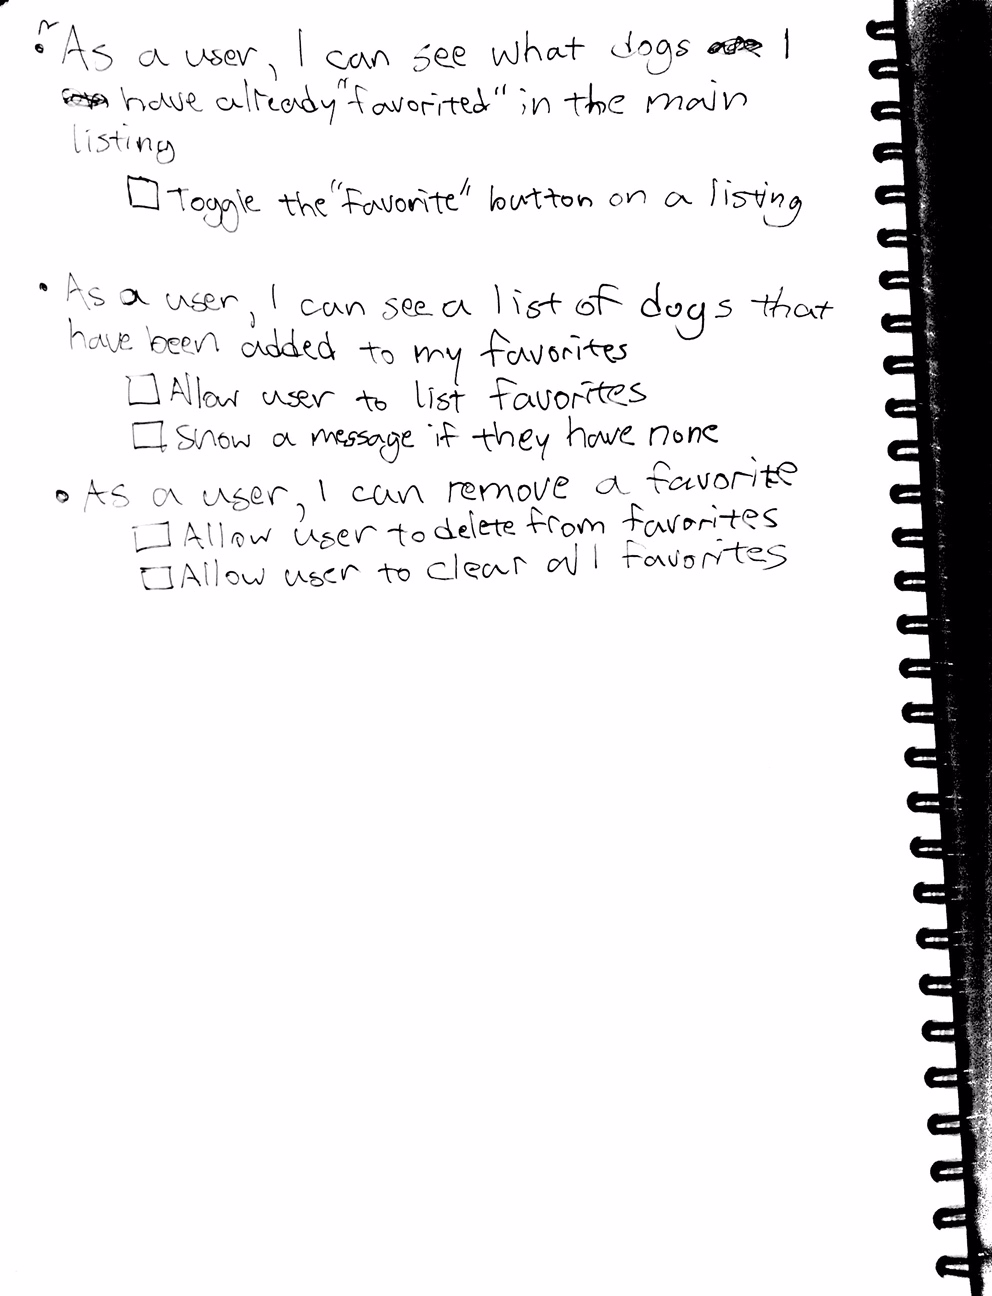 • As a user, I can see what dogs I
have already "favorited" in the main
listing
☐ Toggle the "Favorite" button on a listing
• As a user, I can see a list of dogs that
have been added to my favorites
☐ Allow user to list favorites
☐ Show a message if they have none
• As a user, I can remove a favorite
☐ Allow user to delete from favorites
☐ Allow user to clear all favorites